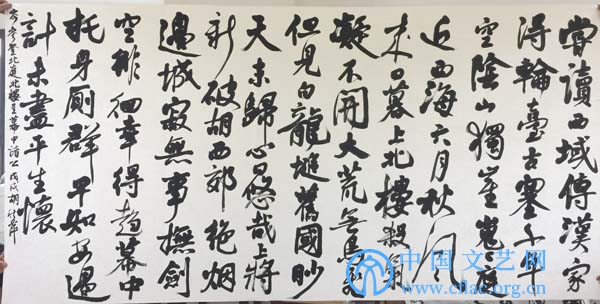 嘗讀西域傳漢家
得輪臺古塞千年
空陰山獨崔嵬庭
近西海六月秋風
来日暮上北樓殺氣
凝不開大荒無鳥飛
但見白龍堆舊國眇
天末歸心日悠哉上將
新破胡西郊絶烟
邊城寂無事撫劍
空徘徊幸得趨幕中
托身厕群早知安邊
計未盡平生懷
岑參登北庭北樓呈幕中諸公戊戌胡
中国文艺网
www.cflac.org.cn